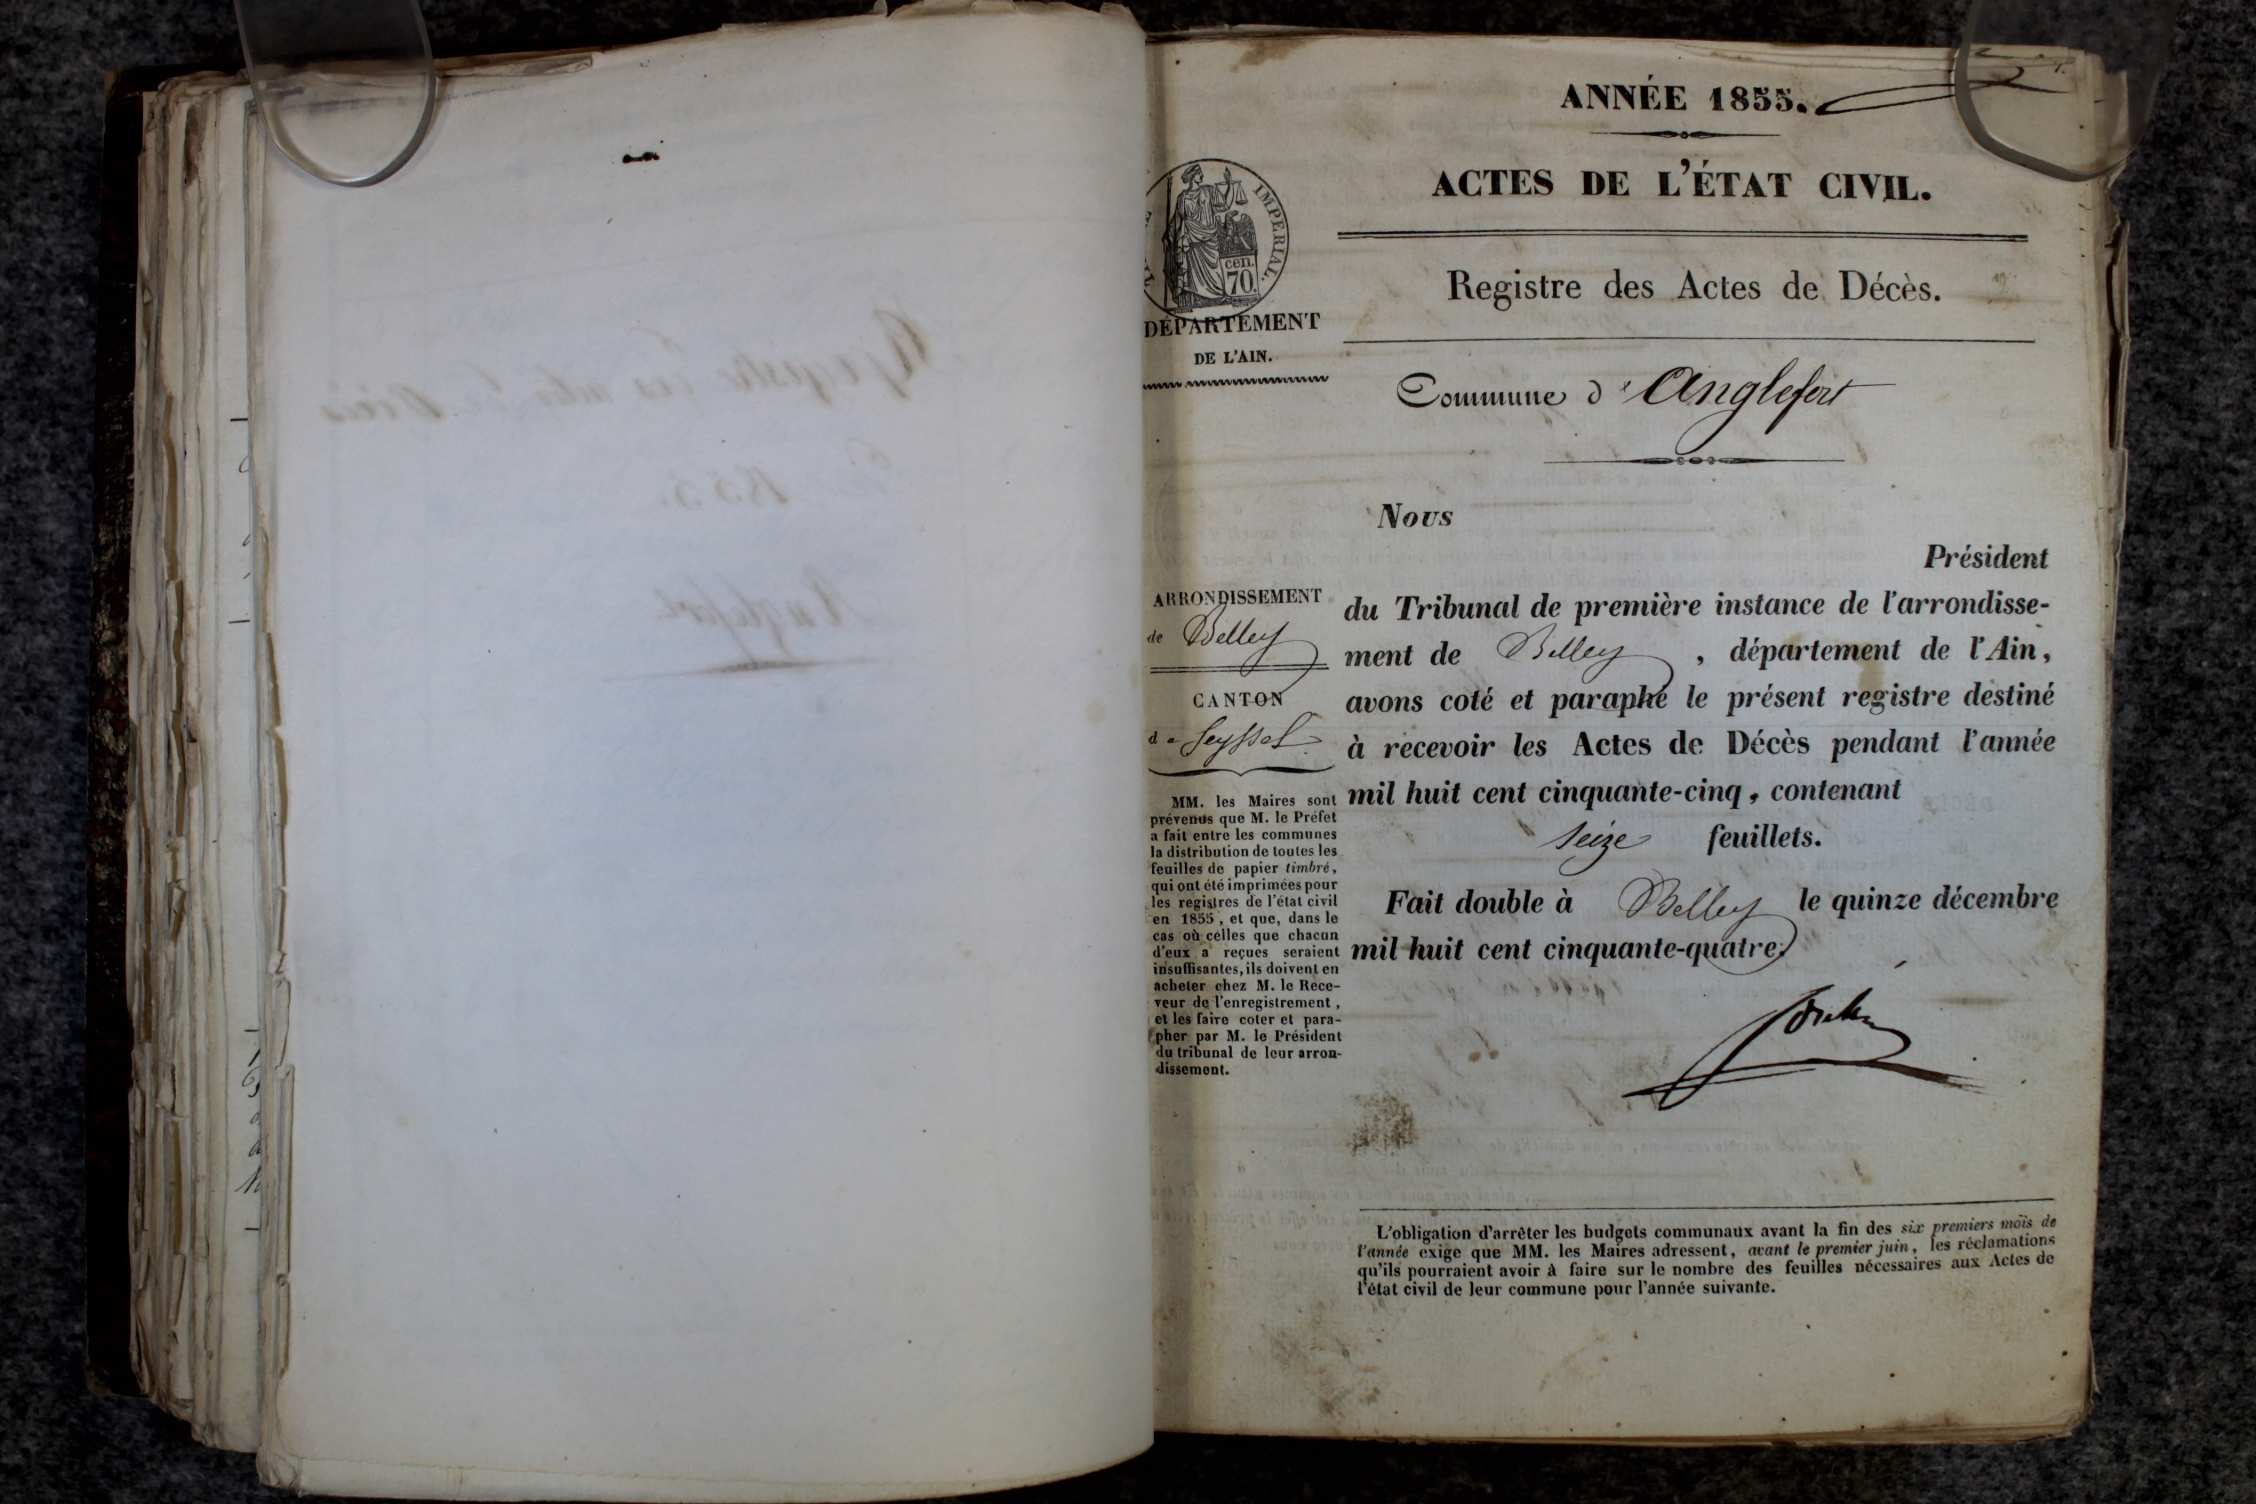 ANNÉE 1855.
ACTES DE L'ÉTAT CIVIL.
Registre des Actes de Décès.
IMPÉRIAL.
cen.
70.
DÉPARTEMENT
DE L'AIN.
Commune d'Anglefort
ARRONDISSEMENT
de Belley
CANTON
de Seyssel
MM. les Maires sont
prévenus que M. le Préfet
a fait entre les communes
la distribution de toutes les
feuilles de papier timbré,
qui ont été imprimées pour
les registres de l'état civil
en 1855, et que, dans le
cas où celles que chacun
d'eux a reçues seraient
insuffisantes, ils doivent en
acheter chez M. le Rece-
veur de l'enregistrement,
et les faire coter et para-
pher par M. le Président
du tribunal de leur arron-
dissement.
Nous
Président
du Tribunal de première instance de l'arrondisse-
ment de Belley, département de l'Ain,
avons coté et paraphé le présent registre destiné
à recevoir les Actes de Décès pendant l'année
mil huit cent cinquante-cinq, contenant
seize feuillets.
Fait double à Belley le quinze décembre
mil huit cent cinquante-quatre.
L'obligation d'arrêter les budgets communaux avant la fin des six premiers mois de
l'année exige que MM. les Maires adressent, avant le premier juin, les réclamations
qu'ils pourraient avoir à faire sur le nombre des feuilles nécessaires aux Actes de
l'état civil de leur commune pour l'année suivante.